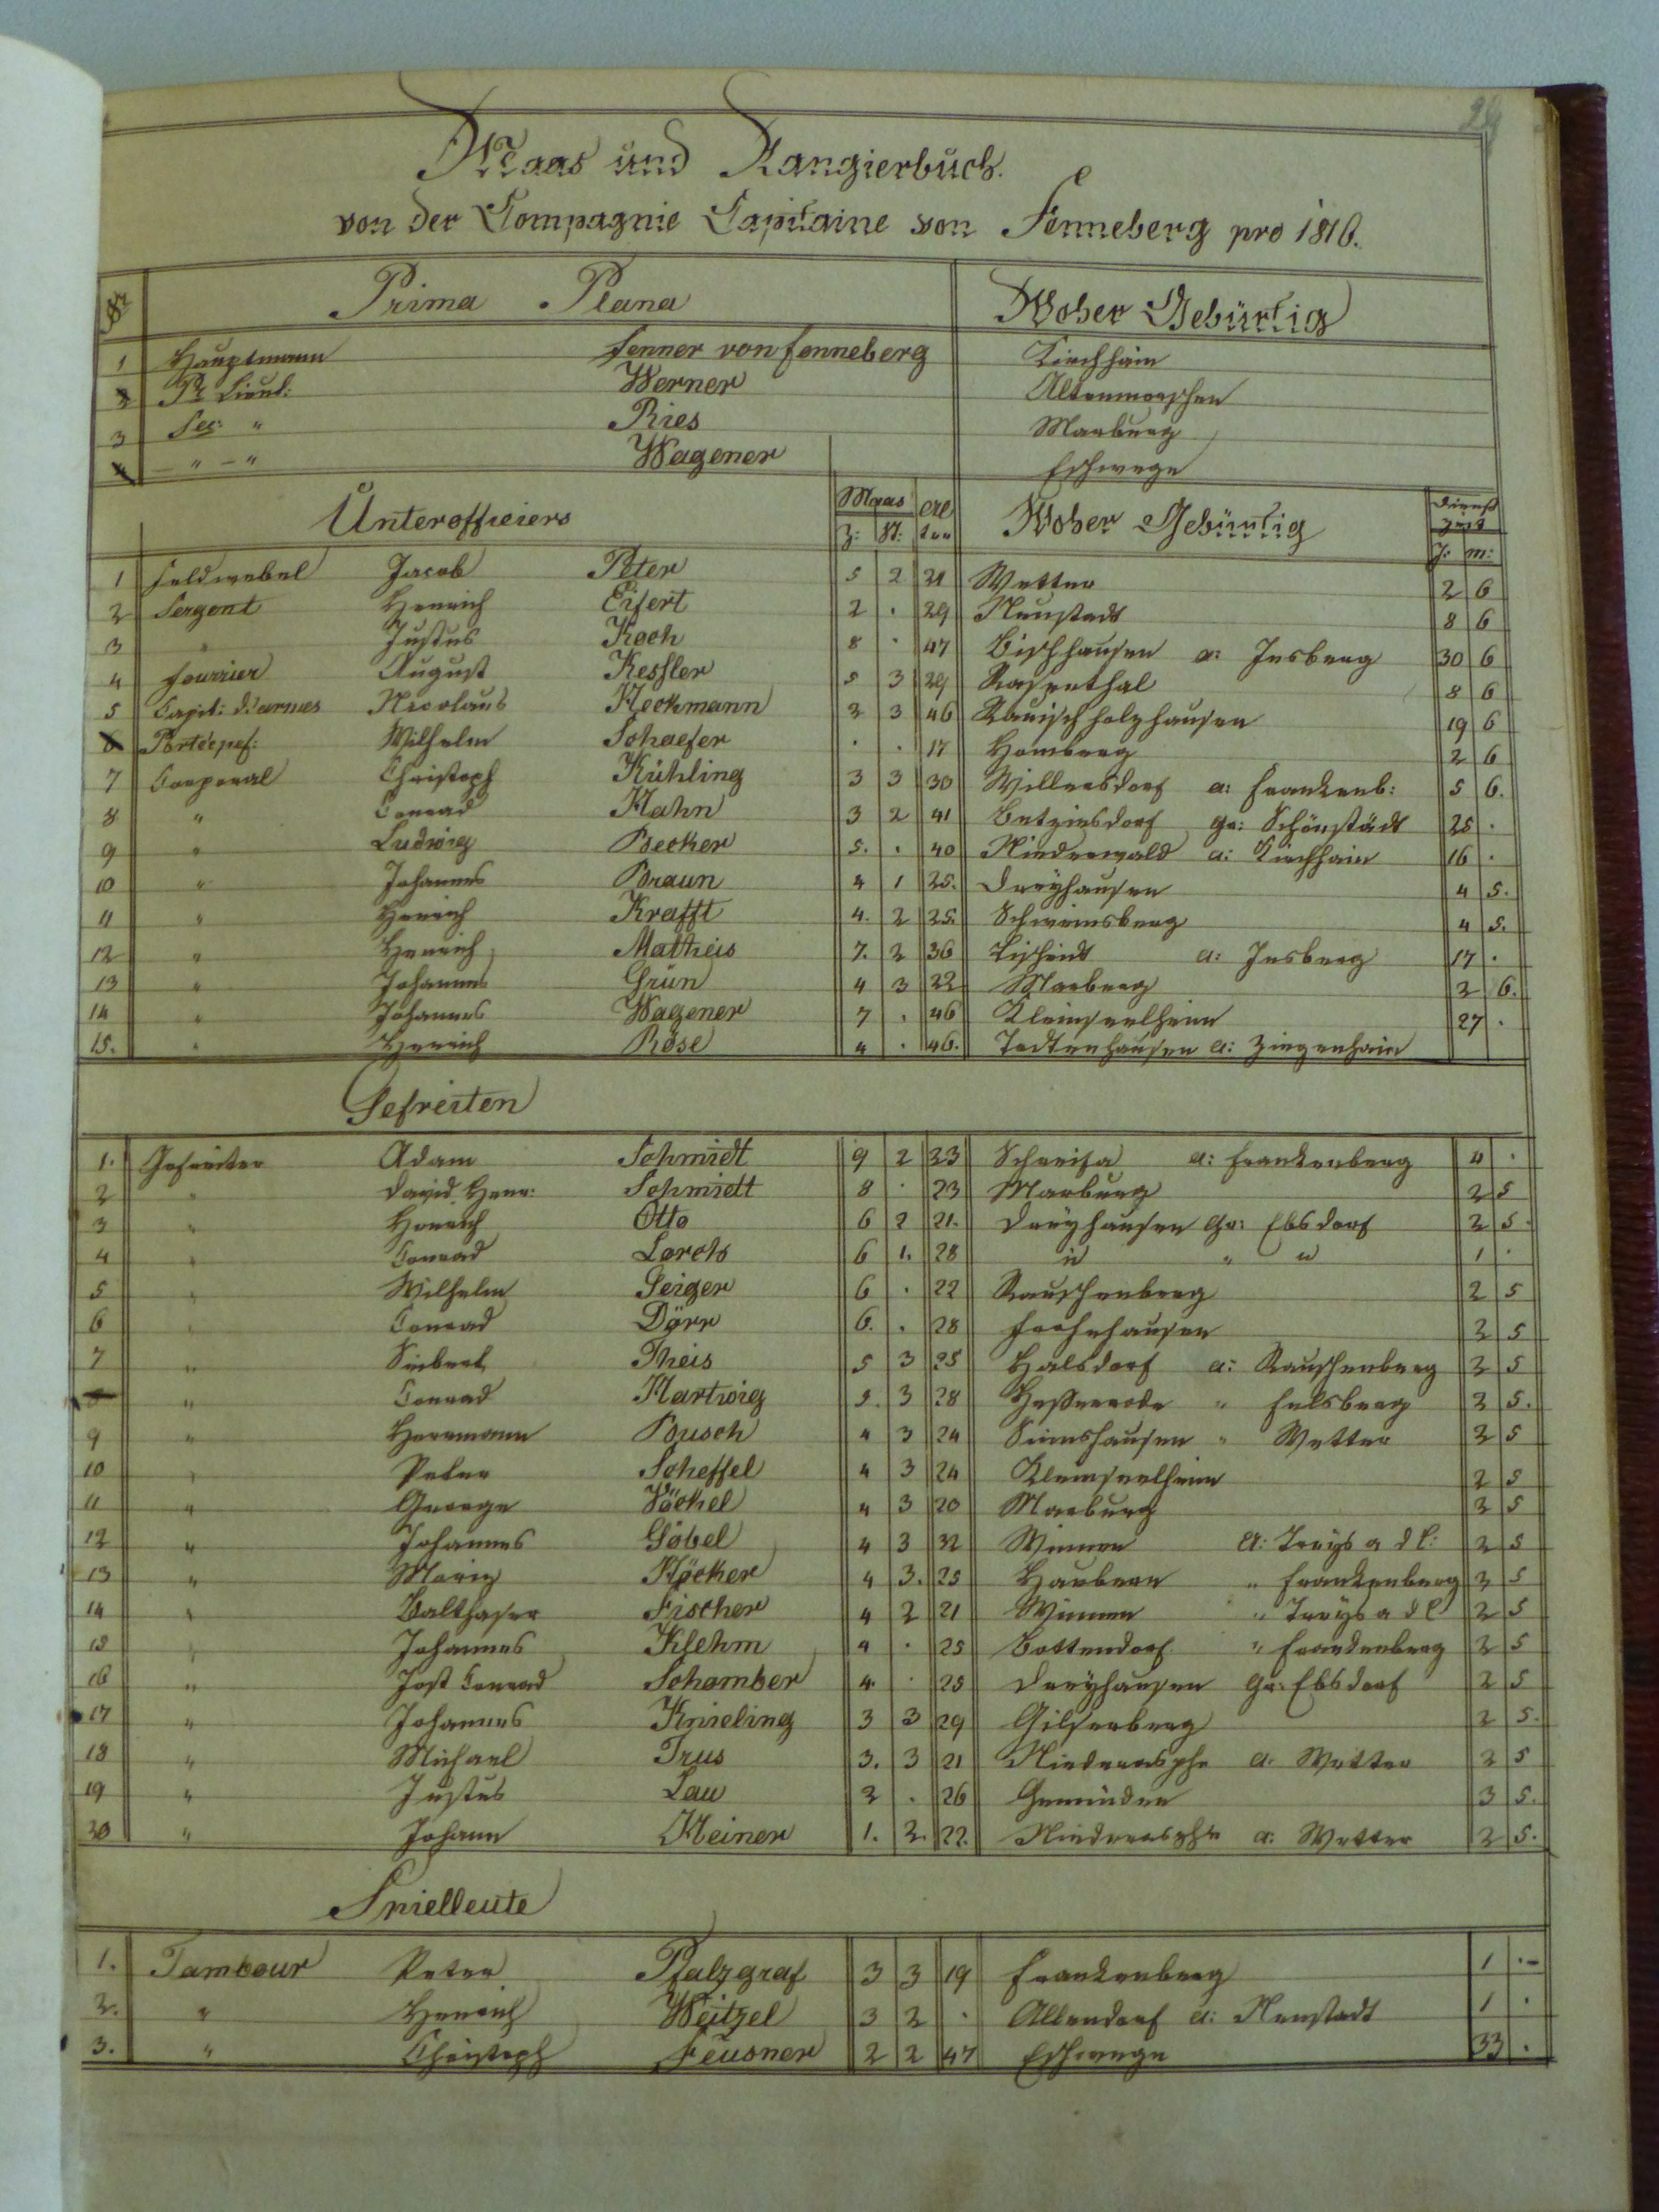 Maas und Rangierbuch.
von der Compagnie Capitaine von Fenneberg pro 1816.
Nr Prima Plana Woher Gebürtig
1 Hauptmann Fenner von Fenneberg Kirchhain
2 Pr Lieut: Werner Altenmorschen
3 Sec: " Ries Marburg
4 – " – " Wagener Eschwege
Unterofficiers Maas Woher Gebürtig Dienst Zeit
Z: St: J: M:
1 Feldwebel Jacob Peter 5 2 31 Wetter 2 6
2 Sergent Henrich Eifert 2 . 29 Neustadt 8 6
3 " Justus Koch 8 . 47 Bischhausen a: Jesberg 30 6
4 Fourrier August Kessler 5 3 29 Rosenthal 8 6
5 Capit: d'armes Nicolaus Heckmann 3 3 46 Rauischholzhausen 19 6
6 Portéepef: Wilhelm Schaefer . . 17 Homberg 2 6
7 Corporal Christoph Kühling 3 3 30 Willersdorf a: Frankenb: 5 6.
8 " Conrad Hahn 3 2 41 Betziesdorf gr: Schönstädt 25 .
9 " Ludwig Becker 5. . 40 Niederwald a: Kirchhain 16 .
10 " Johannes Braun 4 1 25. Dreyhausen 4 5.
11 " Henrich Krafft 4. 2 25. Schweinsberg 4 5.
12 " Henrich Matheis 7. 2 36 Lischeid a: Jesberg 17 .
13 " Johannes Grün 4 3 22 Marburg 2 6.
14 " Johannes Wagener 7 . 46 Kleinseelheim 27 .
15. " Henrich Röse 4 . 46. Todtenhausen a: Ziegenhain
Gefreiten
1. Gefreiter Adam Schmidt 9 2 23 Schreifa a: Frankenberg 4 .
2 " David Henr: Schmidt 8 . 23 Marburg 2 5
3 " Henrich Otto 6 2 21. Dreyhausen gr: Ebsdorf 2 5.
4 " Conrad Lorch 6 1. 28 " " " 1 .
5 " Wilhelm Geiger 6 . 22 Rauschenberg 2 5
6 " Conrad Dörr 6. . 28 Frohnhausen 2 5
7 " Siebert Theis 5 3 25 Halsdorf a: Rauschenberg 2 5
8 " Conrad Hartwig 5. 3 28 Hesserode " Felsberg 2 5.
9 " Herrmann Busch 4 3 24 Simshausen " Wetter 2 5
10 " Peter Scheffel 4 3 24 Kleinseelheim 2 5
11 " George Vöckel 4 3 20 Marburg 2 5
12 " Johannes Göbel 4 3 32 Winnen a: Treys a d L: 2 5
13 " Moriz Höcker 4 3. 25 Haubern " Frankenberg 2 5
14 " Balthaser Fischer 4 2 21 Winnen " Treys a d L 2 5
15 " Johannes Klehm 4 . 25 Bottendorf " Frankenberg 2 5
16 " Jost Conrad Schomber 4. . 25 Dreyhausen gr: Ebsdorf 2 5
17 " Johannes Knieling 3 3 29 Gilserberg 2 5.
18 " Michael Trus 3. 3 21 Niederasphe a: Wetter 2 5
19 " Justus Lau 2 . 26 Gemünden 3 5.
20 " Johann Heiner 1. 2. 22. Niederasphe a: Wetter 2 5.
Spielleute
1. Tambour Peter Pfalzgraf 3 3 19 Frankenberg 1 .
2. " Henrich Weitzel 3 2 . Allendorf a: Neustadt 1 .
3. " Christoph Feusner 2 2 47 Eschwege 33 .